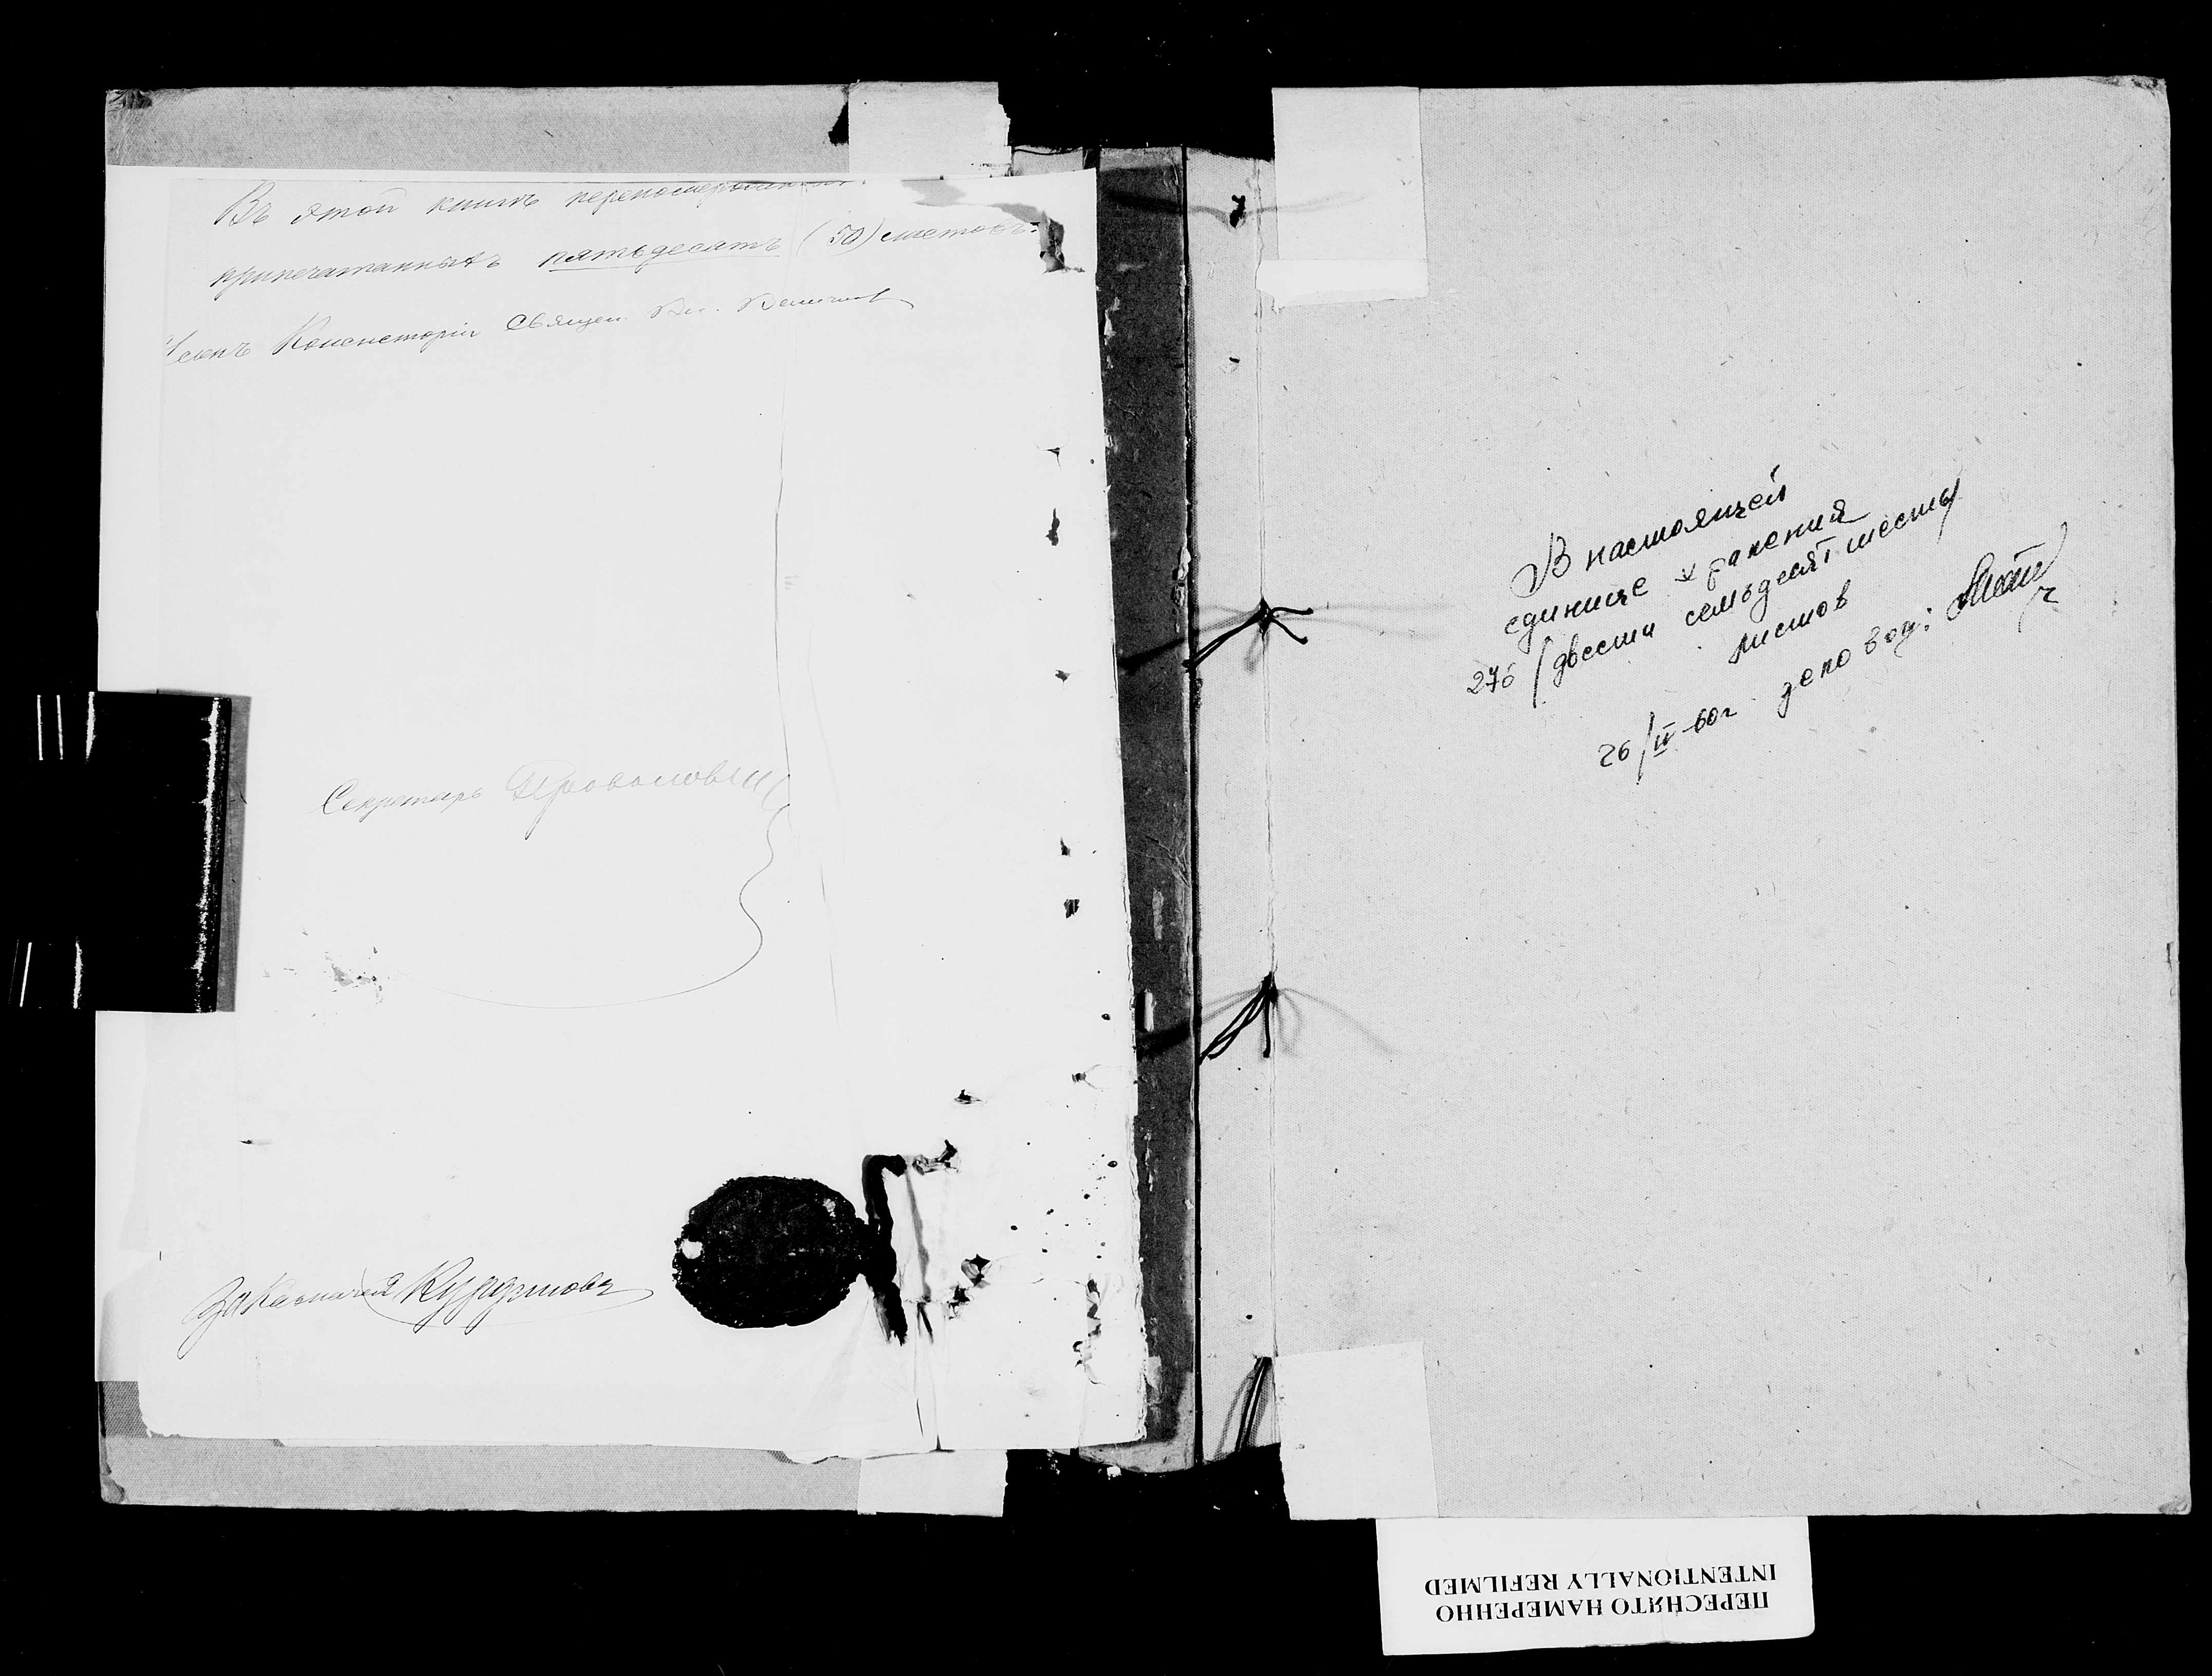 Въ этой книгѣ перенумерованныхъ
припечатанныхъ пятьдесятъ (50) листовъ.
Членъ Консисторіи Священ.
Секретарь
За Казначея
В настоящей
единице хранения
276 /двести семьдесят шесть/
листов
26/II-60г деловод:
ПЕРЕСНЯТО НАМЕРЕННО
INTENTIONALLY REFILMED